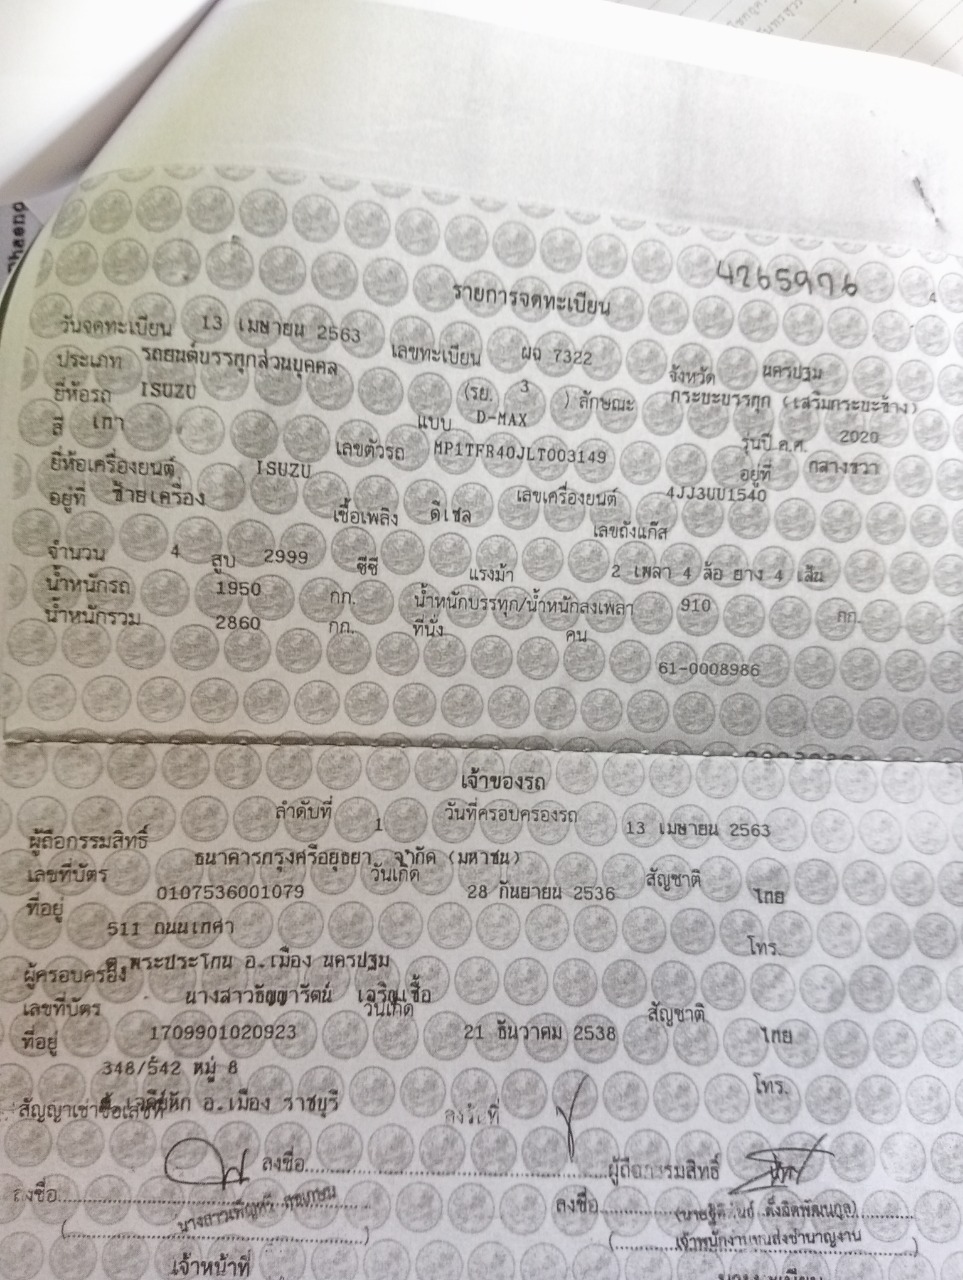 4265976
4
รายการจดทะเบียน
วันจดทะเบียน 13 เมษายน 2563 เลขทะเบียน ผฉ 7322 จังหวัด นครปฐม
ประเภท รถยนต์บรรทุกส่วนบุคคล (รย. 3 ) ลักษณะ กระบะบรรทุก (เสริมกระบะข้าง)
ยี่ห้อรถ ISUZU แบบ D-MAX รุ่นปี ค.ศ. 2020
สี เทา เลขตัวรถ MP1TFR40JLT003149 อยู่ที่ กลางขวา
ยี่ห้อเครื่องยนต์ ISUZU เลขเครื่องยนต์ 4JJ3UU1540
อยู่ที่ ซ้ายเครื่อง เชื้อเพลิง ดีเซล เลขถังแก๊ส
จำนวน 4 สูบ 2999 ซีซี แรงม้า 2 เพลา 4 ล้อ ยาง 4 เส้น
น้ำหนักรถ 1950 กก. น้ำหนักบรรทุก/น้ำหนักลงเพลา 910 กก.
น้ำหนักรวม 2860 กก. ที่นั่ง คน
61-0008986
เจ้าของรถ
ลำดับที่ 1 วันที่ครอบครองรถ 13 เมษายน 2563
ผู้ถือกรรมสิทธิ์ ธนาคารกรุงศรีอยุธยา จำกัด (มหาชน)
เลขที่บัตร 0107536001079 วันเกิด 28 กันยายน 2536 สัญชาติ ไทย
ที่อยู่ 511 ถนนเทศา
ต.พระประโทน อ.เมือง นครปฐม โทร.
ผู้ครอบครอง นางสาวธัญญารัตน์ เจริญเชื้อ
เลขที่บัตร 1709901020923 วันเกิด 21 ธันวาคม 2538 สัญชาติ ไทย
ที่อยู่ 348/542 หมู่ 8
ต.เจดีย์หัก อ.เมือง ราชบุรี โทร.
สัญญาเช่าซื้อเลขที่ ลงวันที่
ลงชื่อ ผู้ถือกรรมสิทธิ์
ลงชื่อ ลงชื่อ
เจ้าพนักงานขนส่งชำนาญงาน
เจ้าหน้าที่